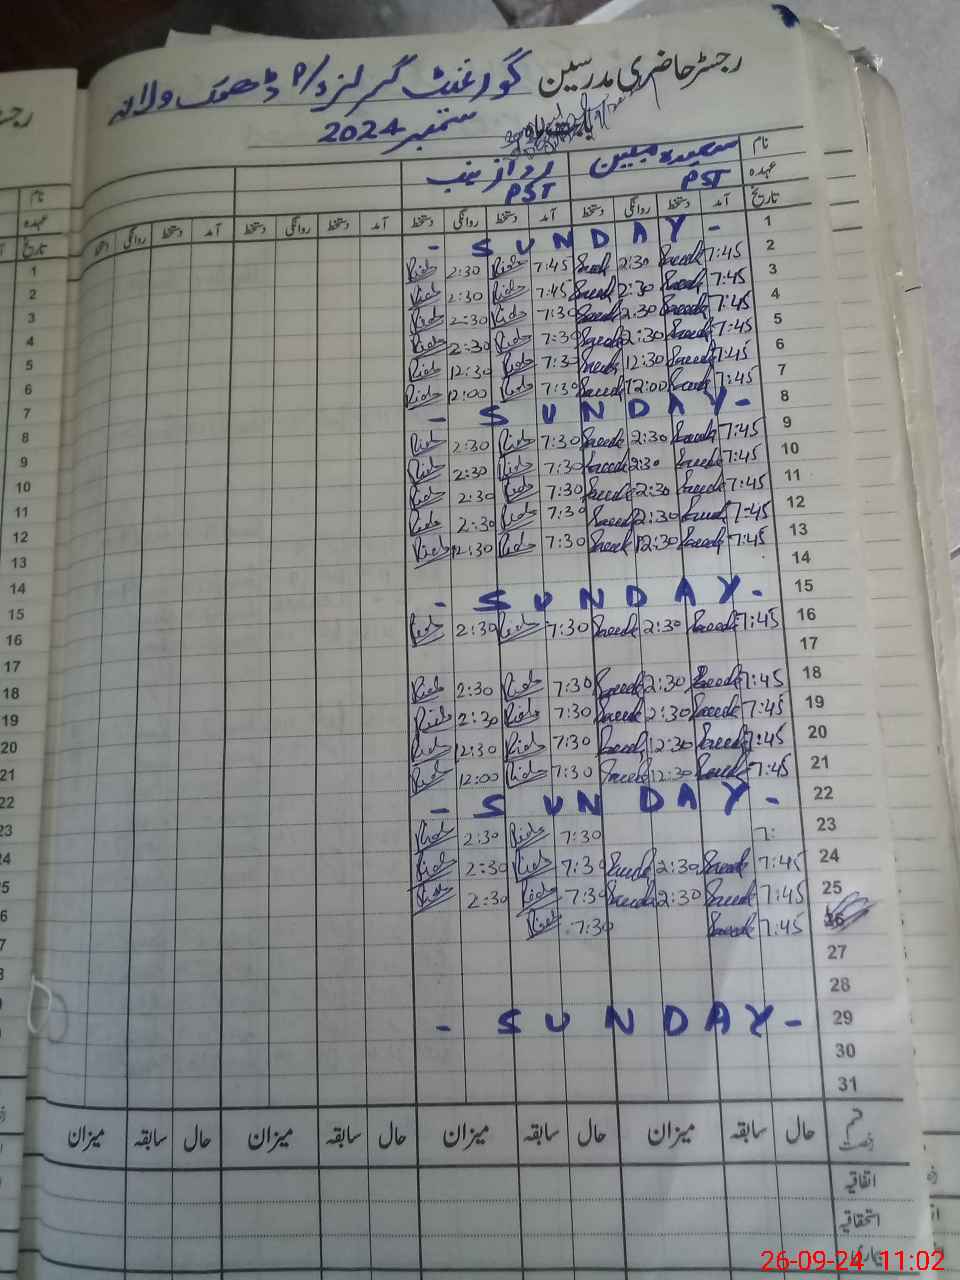 رجسٹر حاضری مدرسین گورنمنٹ گرلز P/S ڈھمک ولانہ
ستمبر 2024
نام سعیدہ مبین ردا زینب
عہدہ PST PST
تاریخ آمد دستخط روانگی دستخط آمد دستخط روانگی دستخط آمد دستخط روانگی دستخط آمد دستخط روانگی دستخط
1 - SUNDAY -
2 7:45 Saeeda 2:30 Saeeda 7:45 Rida 2:30 Rida
3 7:45 Saeeda 2:30 Saeeda 7:45 Rida 2:30 Rida
4 7:45 Saeeda 2:30 Saeeda 7:30 Rida 2:30 Rida
5 7:45 Saeeda 2:30 Saeeda 7:30 Rida 2:30 Rida
6 7:45 Saeeda 12:30 Saeeda 7:30 Rida 12:30 Rida
7 7:45 Saeeda 12:00 Saeeda 7:30 Rida 12:00 Rida
8 - SUNDAY -
9 7:45 Saeeda 2:30 Saeeda 7:30 Rida 2:30 Rida
10 7:45 Saeeda 2:30 Saeeda 7:30 Rida 2:30 Rida
11 7:45 Saeeda 2:30 Saeeda 7:30 Rida 2:30 Rida
12 7:45 Saeeda 2:30 Saeeda 7:30 Rida 2:30 Rida
13 7:45 Saeeda 12:30 Saeeda 7:30 Rida 12:30 Rida
14
15 - SUNDAY -
16 7:45 Saeeda 2:30 Saeeda 7:30 Rida 2:30 Rida
17
18 7:45 Saeeda 2:30 Saeeda 7:30 Rida 2:30 Rida
19 7:45 Saeeda 2:30 Saeeda 7:30 Rida 2:30 Rida
20 7:45 Saeeda 12:30 Saeeda 7:30 Rida 12:30 Rida
21 7:45 Saeeda 12:30 Saeeda 7:30 Rida 12:00 Rida
22 - SUNDAY -
23 7: 7:30 Rida 2:30 Rida
24 7:45 Saeeda 2:30 Saeeda 7:30 Rida 2:30 Rida
25 7:45 Saeeda 2:30 Saeeda 7:30 Rida 2:30 Rida
26 7:45 Saeeda 7:30 Rida
27
28
29 - SUNDAY -
30
31
قسم رخصت حال سابقہ میزان حال سابقہ میزان حال سابقہ میزان
اتفاقیہ
استحقاقیہ
بیماری
26-09-24 11:02